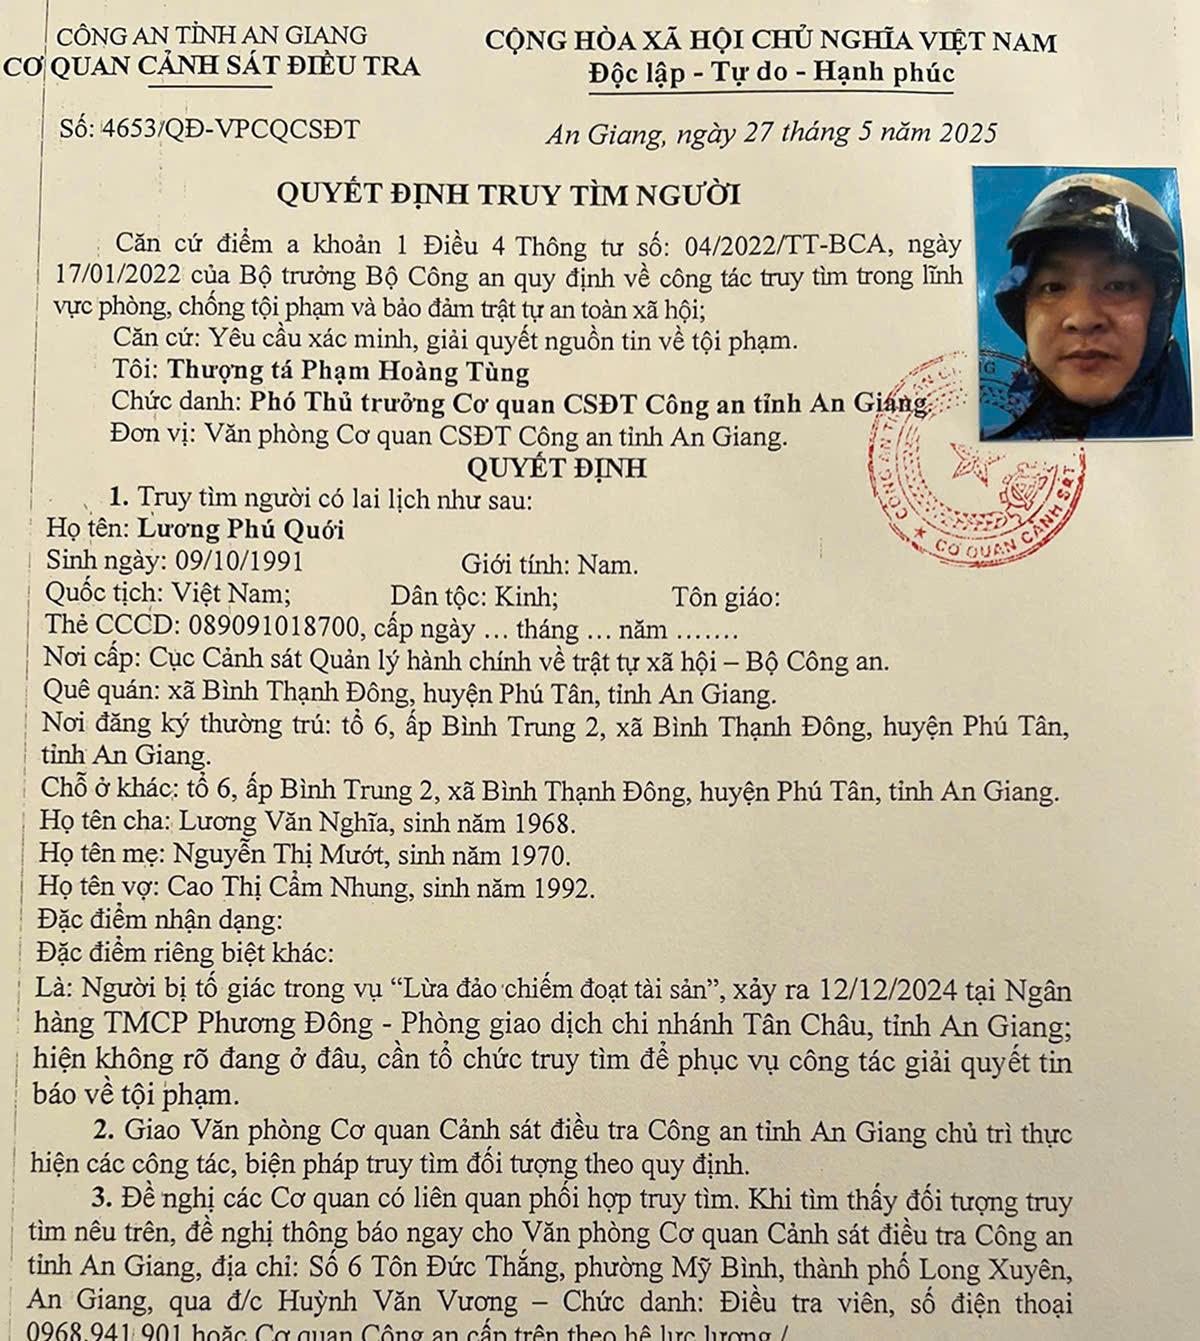 CÔNG AN TỈNH AN GIANG
CƠ QUAN CẢNH SÁT ĐIỀU TRA
CỘNG HÒA XÃ HỘI CHỦ NGHĨA VIỆT NAM
Độc lập - Tự do - Hạnh phúc
Số: 4653/QĐ-VPCQCSĐT
An Giang, ngày 27 tháng 5 năm 2025
QUYẾT ĐỊNH TRUY TÌM NGƯỜI
Căn cứ điểm a khoản 1 Điều 4 Thông tư số: 04/2022/TT-BCA, ngày
17/01/2022 của Bộ trưởng Bộ Công an quy định về công tác truy tìm trong lĩnh
vực phòng, chống tội phạm và bảo đảm trật tự an toàn xã hội;
Căn cứ: Yêu cầu xác minh, giải quyết nguồn tin về tội phạm.
Tôi: Thượng tá Phạm Hoàng Tùng
Chức danh: Phó Thủ trưởng Cơ quan CSĐT Công an tỉnh An Giang.
Đơn vị: Văn phòng Cơ quan CSĐT Công an tỉnh An Giang.
QUYẾT ĐỊNH
1. Truy tìm người có lai lịch như sau:
Họ tên: Lương Phú Quới
Sinh ngày: 09/10/1991 Giới tính: Nam.
Quốc tịch: Việt Nam; Dân tộc: Kinh; Tôn giáo:
Thẻ CCCD: 089091018700, cấp ngày ... tháng ... năm .......
Nơi cấp: Cục Cảnh sát Quản lý hành chính về trật tự xã hội – Bộ Công an.
Quê quán: xã Bình Thạnh Đông, huyện Phú Tân, tỉnh An Giang.
Nơi đăng ký thường trú: tổ 6, ấp Bình Trung 2, xã Bình Thạnh Đông, huyện Phú Tân,
tỉnh An Giang.
Chỗ ở khác: tổ 6, ấp Bình Trung 2, xã Bình Thạnh Đông, huyện Phú Tân, tỉnh An Giang.
Họ tên cha: Lương Văn Nghĩa, sinh năm 1968.
Họ tên mẹ: Nguyễn Thị Mướt, sinh năm 1970.
Họ tên vợ: Cao Thị Cẩm Nhung, sinh năm 1992.
Đặc điểm nhận dạng:
Đặc điểm riêng biệt khác:
Là: Người bị tố giác trong vụ “Lừa đảo chiếm đoạt tài sản”, xảy ra 12/12/2024 tại Ngân
hàng TMCP Phương Đông - Phòng giao dịch chi nhánh Tân Châu, tỉnh An Giang;
hiện không rõ đang ở đâu, cần tổ chức truy tìm để phục vụ công tác giải quyết tin
báo về tội phạm.
2. Giao Văn phòng Cơ quan Cảnh sát điều tra Công an tỉnh An Giang chủ trì thực
hiện các công tác, biện pháp truy tìm đối tượng theo quy định.
3. Đề nghị các Cơ quan có liên quan phối hợp truy tìm. Khi tìm thấy đối tượng truy
tìm nêu trên, đề nghị thông báo ngay cho Văn phòng Cơ quan Cảnh sát điều tra Công an
tỉnh An Giang, địa chỉ: Số 6 Tôn Đức Thắng, phường Mỹ Bình, thành phố Long Xuyên,
An Giang, qua đ/c Huỳnh Văn Vương – Chức danh: Điều tra viên, số điện thoại
0968.941.901 hoặc Cơ quan Công an cấp trên theo hệ lực lượng./.
CƠ QUAN CẢNH SÁT